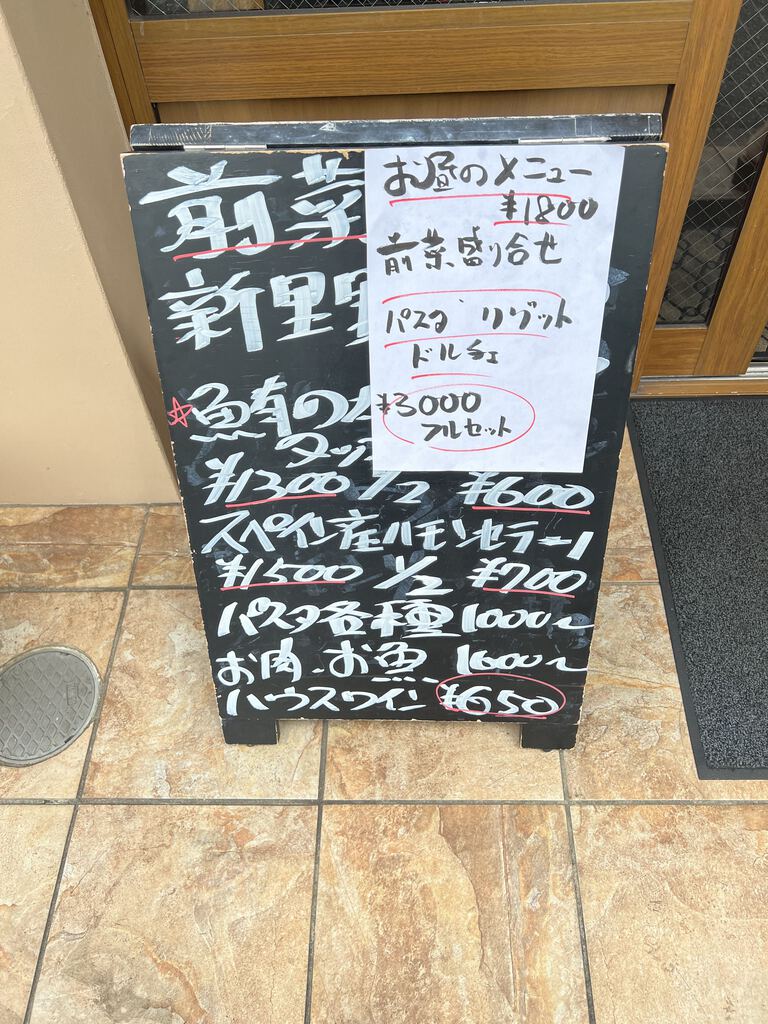 お昼のメニュー
¥1800
前菜盛り合せ
パスタ リゾット
ドルチェ
¥3000
フルセット
前菜
新里
魚有の
¥1300 1/2 ¥600
スペイン産ハモンセラーノ
¥1500 1/2 ¥700
パスタ各種 1000~
お肉.お魚 1600~
ハウスワイン ¥650